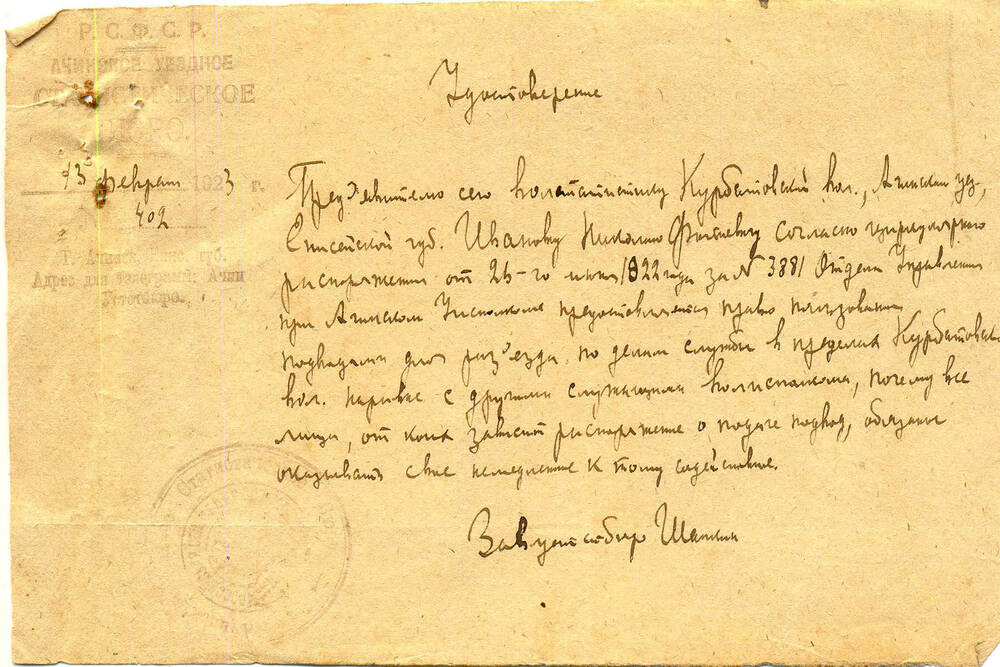 Р. С. Ф. С. Р.
АЧИНСКОЕ УЕЗДНОЕ
СТАТИСТИЧЕСКОЕ
БЮРО.
13 февраля 1923 г.
402
Г. Ачинск, Енис. губ.
Адрес для телеграмм: Ачин
Устатбюро.
Удостоверение
Пред'явителю сего волстатистику Курбатовской вол., Ачинском уез.,
Енисейской губ. Иванову Николаю согласно циркулярного
распоряжения от 25-го июня 1922 года за № 3881 Отдела Управления
при Ачинском Уисполкоме предоставляется право пользования
подводами для раз'езда по делам службы в пределах Курбатовской
вол. наравне с другими служащими волисполкома, почему все
лица, от коих зависит распоряжение о подаче подвод, обязаны
оказывать свое немедленное к тому содействие.
Завустатбюро